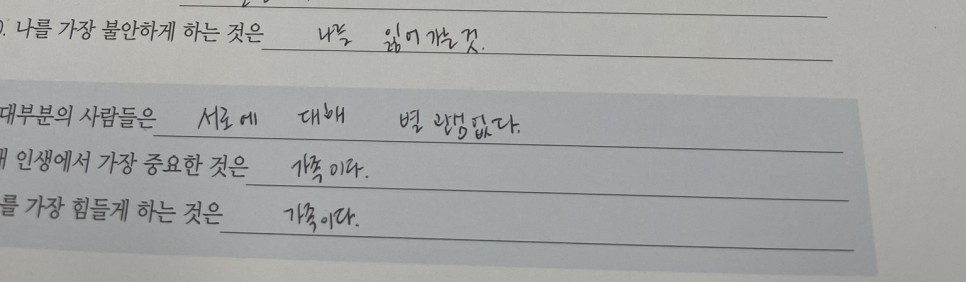 . 나를 가장 불안하게 하는 것은 나를 잃어 가는 것.
대부분의 사람들은 서로에 대해 별 관심없다.
인생에서 가장 중요한 것은 가족이다.
를 가장 힘들게 하는 것은 가족이다.